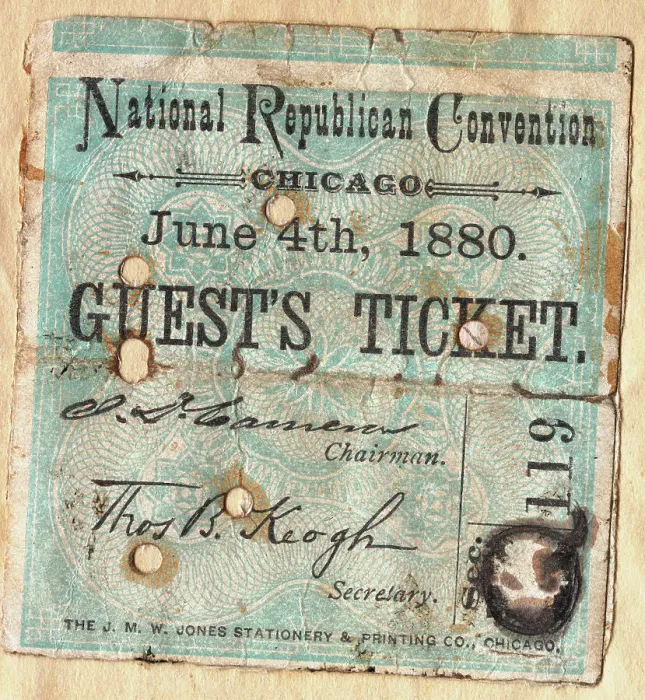 National Republican Convention
CHICAGO
June 4th, 1880.
GUEST'S TICKET.
J. D. Cameron
Chairman.
119
Thos B. Keogh
Sec.
Secretary.
THE J. M. W. JONES STATIONERY & PRINTING CO., CHICAGO.